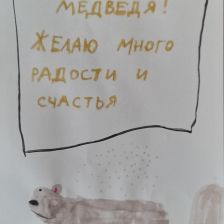 МЕДВЕДЯ!
ЖЕЛАЮ МНОГО
РАДОСТИ И
СЧАСТЬЯ